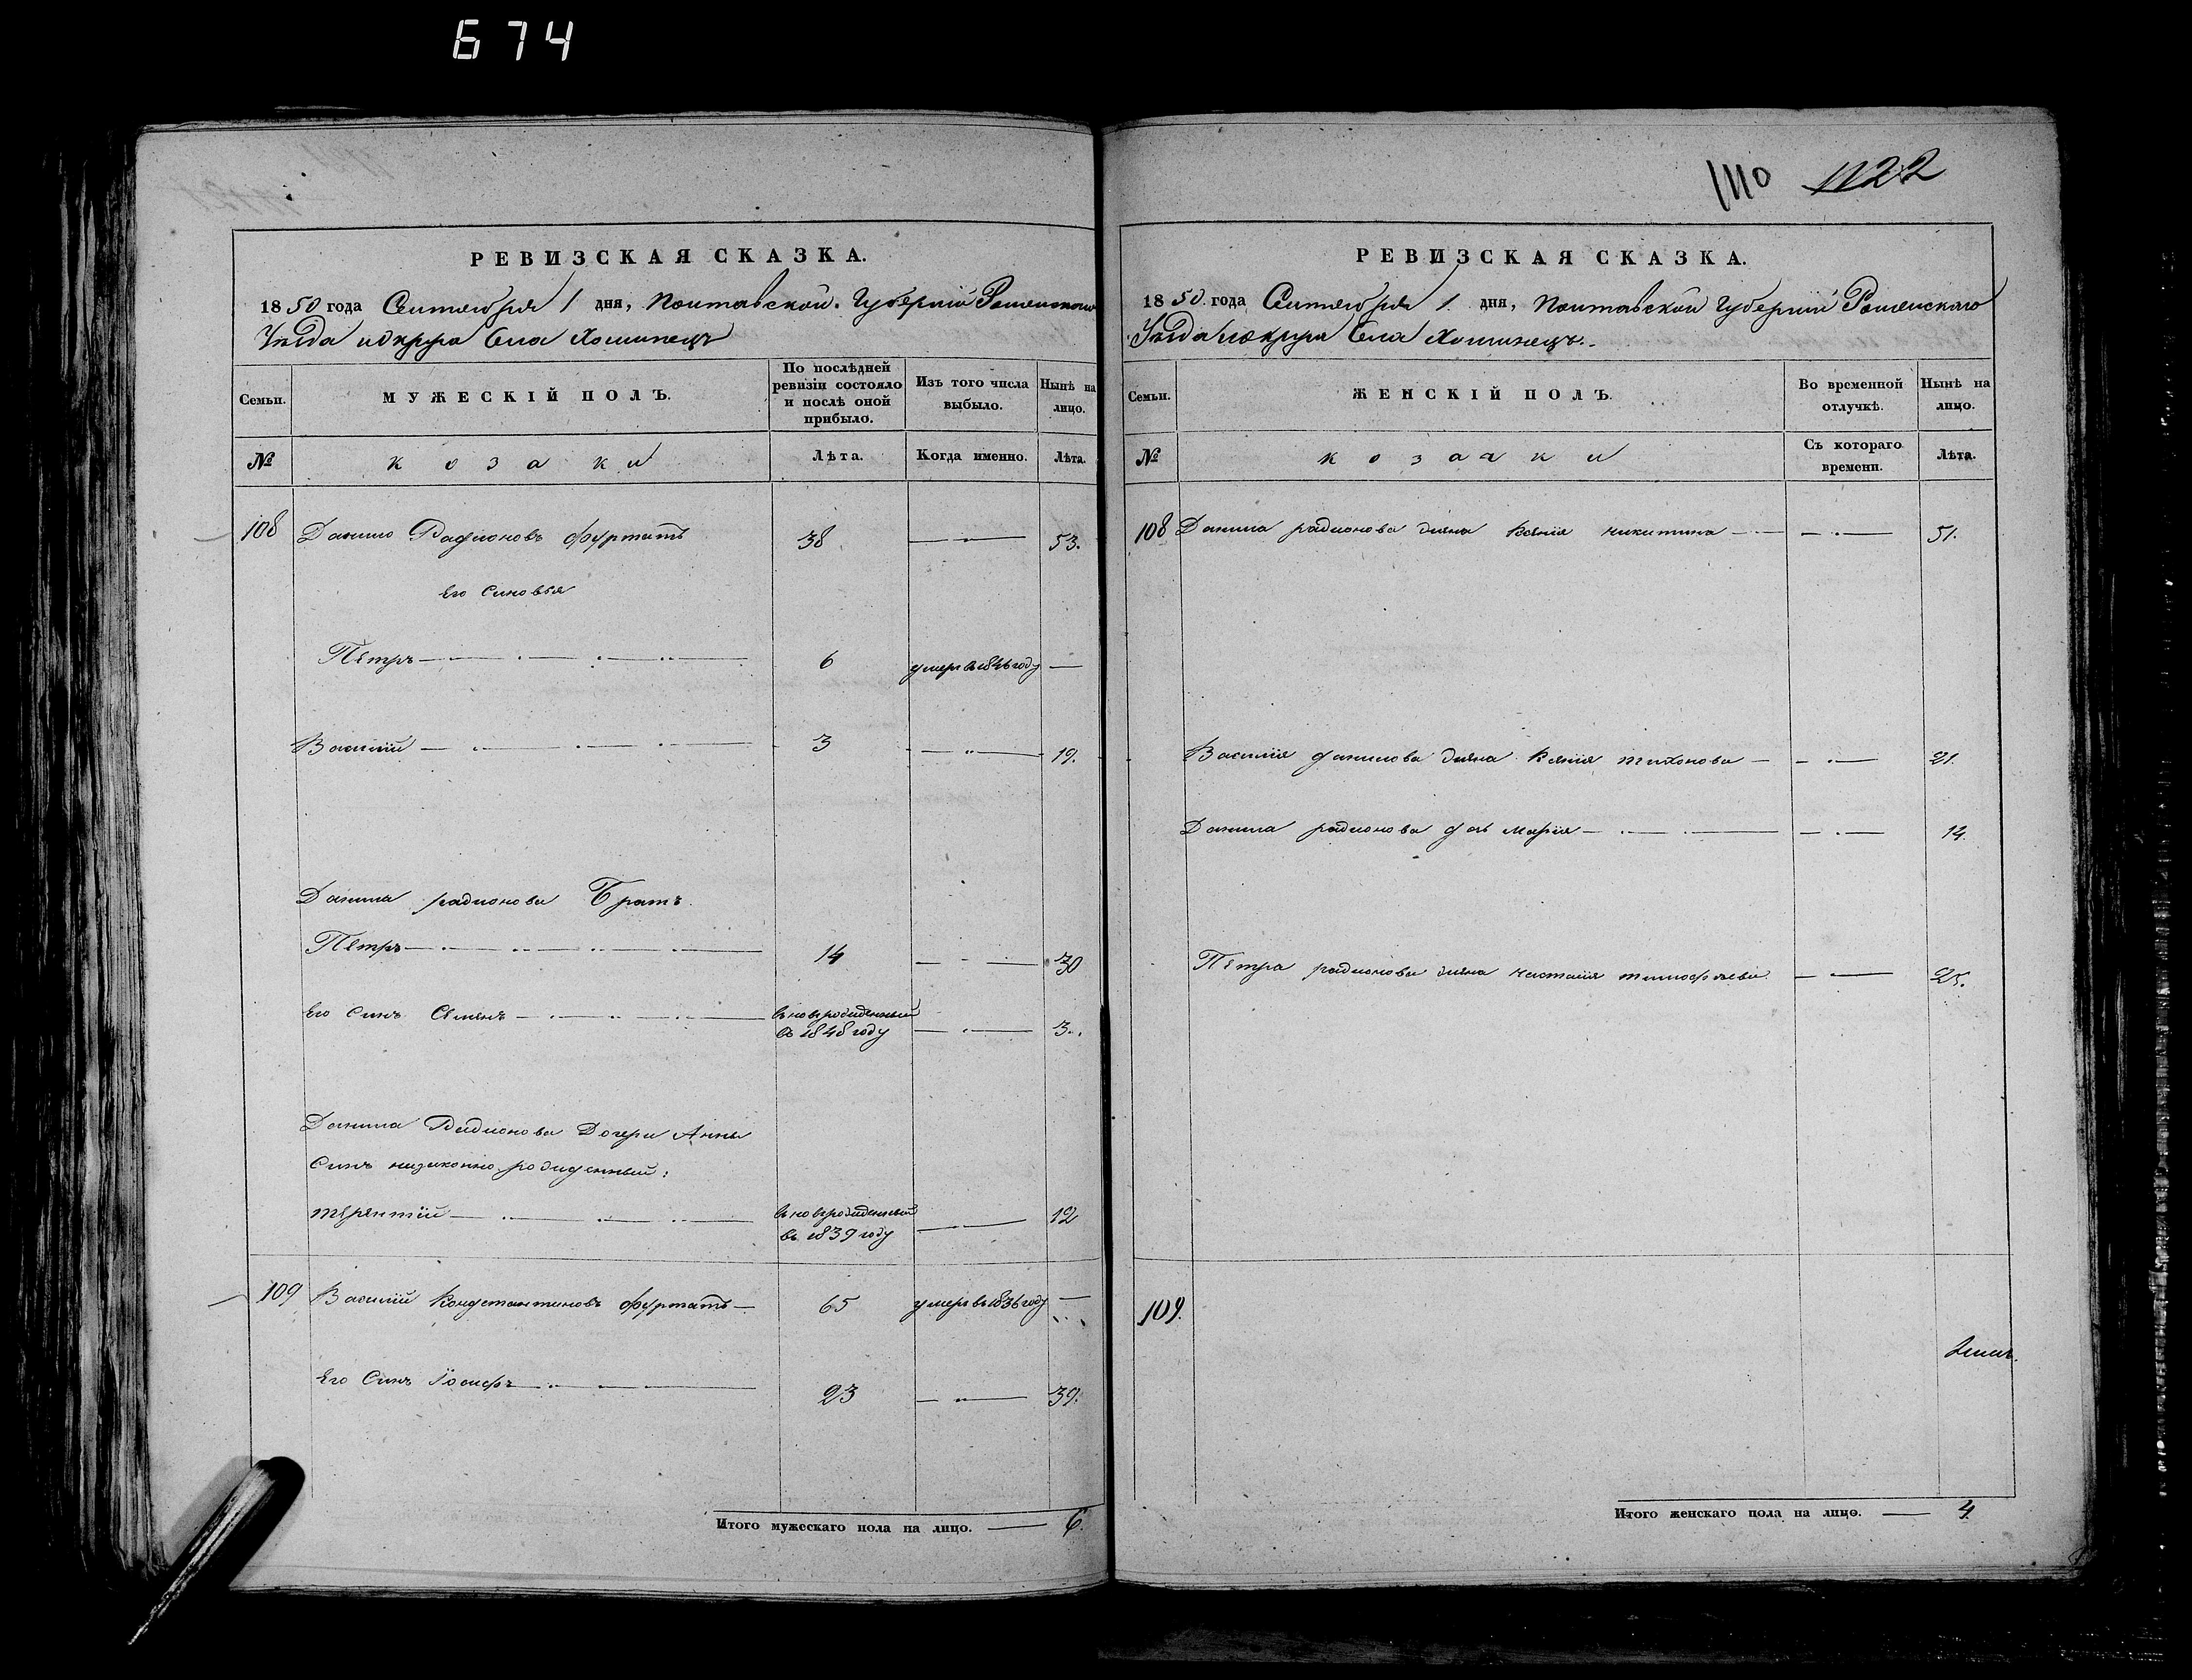 674
1110 1122
РЕВИЗСКАЯ СКАЗКА.
1850 года Сентября 1 дня, Полтавской Губерніи Роменскаго
Уѣзда и округа Села Хоминецъ
Семьи.
МУЖЕСКІЙ ПОЛЪ.
По послѣдней ревизіи состояло и послѣ оной прибыло.
Изъ того числа выбыло.
Нынѣ на лицо.
№
козаки
Лѣта.
Когда именно.
Лѣта.
108 Данило Радионовъ Фуртатъ 38 53.
Его Синовья
Петръ 6 умеръ в 1846 году
Василій 3 19.
Данила радионова Братъ
Петръ 14 30
Его Синъ Семенъ вновърожденный в 1848 году 3.
Данила Радионова Дочери Анны
Синъ низаконно рожденный:
терентій вновърожденный въ 1839 году 12
109 Василій Константиновъ Фуртатъ 65 умеръ въ 1836 году
Его Синъ Іосифъ 23 39.
Итого мужескаго пола на лицо. 6.
РЕВИЗСКАЯ СКАЗКА.
1850 года Сентября 1 дня, Полтавской Губерніи Роменскаго
Уѣзда и округа Села Хоминецъ.
Семьи.
ЖЕНСКІЙ ПОЛЪ.
Во временной отлучкѣ.
Нынѣ на лицо.
№
козачки
Съ котораго времени.
Лѣта.
108 Данила радионова жена Ксенія никитина 51.
Василія данилова жена Ксенія тихонова 21.
Данила радионова дочь Марія 14.
Петра радионова жена настасія тимофѣева 25.
109.
Итого женскаго пола на лицо. 4